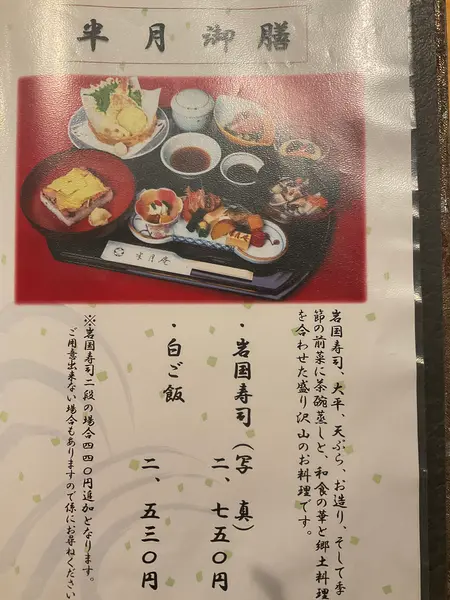 半月御膳
半月庵
岩国寿司、大平、天ぷら、お造り、そして季
節の前菜に茶碗蒸しと、和食の華と郷土料理
を合わせた盛り沢山のお料理です。
・岩国寿司(写真)
二、七五〇円
・白ご飯
二、五三〇円
※岩国寿司二段の場合四四〇円追加となります。
ご用意出来ない場合もありますので係にお尋ねください